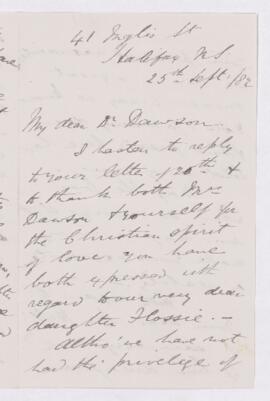 41 Inglis St
Halifax N.S.
25th Sept. /82
My dear Dr. Dawson
I hasten to reply
to your letter of 20th &
to thank both Mrs
Dawson & yourself for
the Christian spirit
of love you have
both expressed with
regard to our very dear
daughter Flossie. —
Altho' we have not
had the privilege of